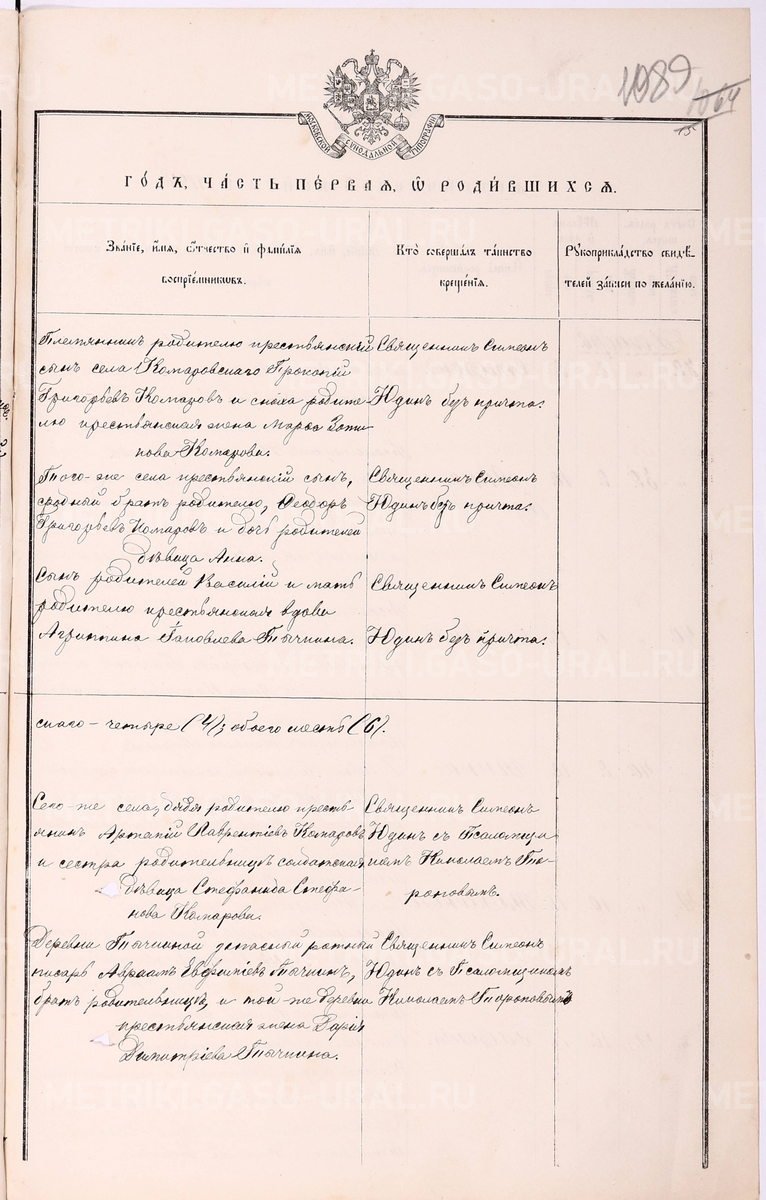 1089
1064
МОСКОВСКОЙ СѴНОДАЛЬНОЙ ТИПОГРАФІИ
ГО́ДЪ, ЧА́СТЬ ПЕ́РВАѦ, Ѡ҆ РОДИ́ВШИХСѦ.
Зва́ніе, и҆́мѧ, ѻ҆́тчество и҆ фами́лїѧ
воспрїе́мникѡвъ.
Кто̀ соверша́лъ та́инство
креще́нїѧ.
Рꙋкоприкла́дство свидѣ́-
телей за́писи по жела́нїю.
Племянникъ родителю крестьянскій
сынъ села Комаровскаго Прокопій
Григорьевъ Комаровъ и сноха родите-
лю крестьянская жена Марѳа Зоти
кова Комарова.
Священникъ Симеонъ
Юдинъ безъ причта.
Того-же села крестьянскій сынъ,
сродный братъ родителю, Ѳеодоръ
Григорьевъ Комаровъ и дочь родителей
дѣвица Анна.
Священникъ Симеонъ
Юдинъ безъ причта.
Сынъ родителей Василій и мать
родителю крестьянская вдова
Агриппина Іаковлева Тычкина.
Священникъ Симеонъ
Юдинъ безъ причта.
скаго - четыре (4); обоего шесть (6).
Сего-же села, дядя родителю кресть-
янинъ Артемій Лаврентіевъ Комаровъ
и сестра родительницѣ солдатская
дѣвица Стефанида Стефа-
нова Комарова.
Священникъ Симеонъ
Юдинъ съ Псаломщи
комъ Николаемъ То-
роповымъ.
Деревни Тычкиной запасный ротный
писарь Авраамъ Евфиміевъ Тычкинъ,
братъ родительницѣ, и той-же деревни
крестьянская жена Дарія
Димитріева Тычкина.
Священникъ Симеонъ
Юдинъ съ Псаломщикомъ
Николаемъ Тороповымъ
METRIKI.GASO-URAL.RU